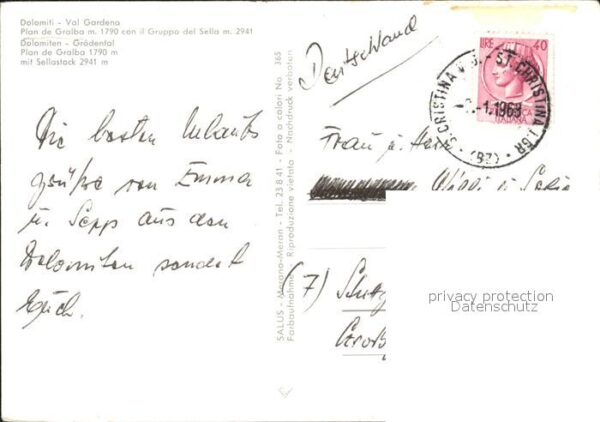 Dolomiti - Val Gardena
Plan de Gralba m. 1790 con il Gruppo del Sella m. 2941
Dolomiten - Grödental
Plan de Gralba 1790 m
mit Sellastock 2941 m
Die besten Urlaubs
grüße von Emma
u. Sepp aus den
Dolomiten sendet
Euch.
SALUS - Merano-Meran - Tel. 23 8 41 - Foto a colori No. 365
Farbaufnahme - Riproduzione vietata - Nachdruck verboten
Deutschland
LIRE 40
S. CRISTINA - ST. CHRISTINA I. GR. (BZ)
-1.1963
Frau u. Herr
(7)
privacy protection
Datenschutz